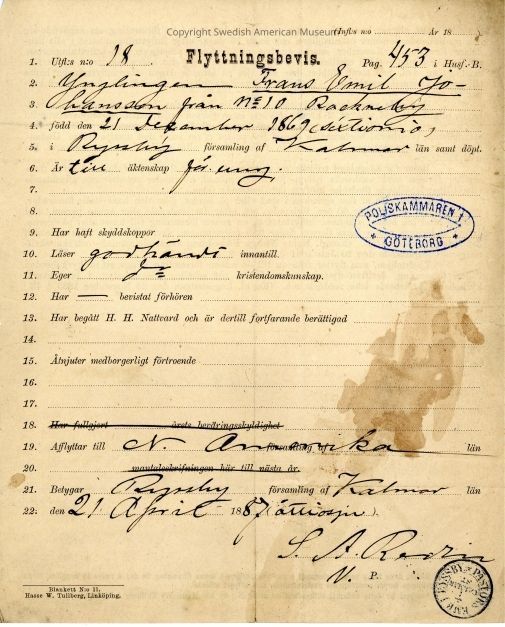 Copyright Swedish American Museum
(Infl:s n:o År 18
Flyttningsbevis.
1. Utfl:s n:o 18 Pag. 453 i Husf.-B.
2. Ynglingen Frans Emil Jo-
3. hansson från No 10 Rackneby
4. född den 21 December 1869 (sextionio)
5. i Ryssby församling af Kalmar län samt döpt.
6. Är till äktenskap för ung.
7.
8.
9. Har haft skyddskoppor
POLISKAMMAREN I
GÖTEBORG
10. Läser godkändt innantill.
11. Eger do kristendomskunskap.
12. Har — bevistat förhören
13. Har begått H. H. Nattvard och är dertill fortfarande berättigad
14.
15. Åtnjuter medborgerligt förtroende
16.
17.
18. Har fullgjort årets beväringsskyldighet
19. Afflyttar till N. Amerika församling af län
20. mantalsskrifningen här till nästa år.
21. Betygar Ryssby församling af Kalmar län
22. den 21 April 1887 (åttiosju).
S. A. Rodin
V. P.
Blankett N:o 11.
Hasse W. Tullberg, Linköping.
RYSSBY PASTORS